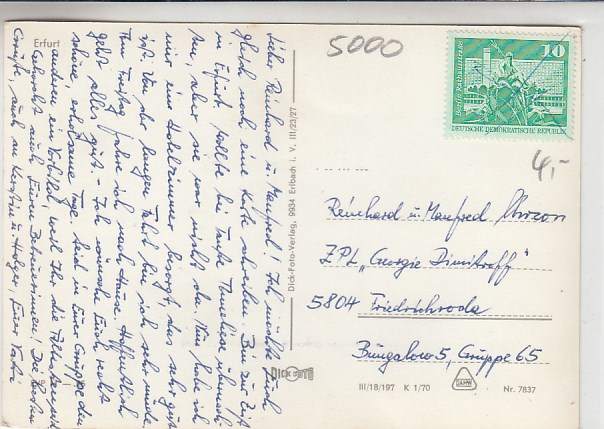 Erfurt
Lieber Reinhard u. Manfred! Ich möchte Euch
gleich noch eine Karte schreiben. Bin zur Zeit
in Erfurt, sollte bei Tante Annelise übernach-
ten, aber sie war nicht da. Nun habe ich
mir ein Hotelzimmer besorgt, das sehr gut
ist. Von der langen Fahrt bin ich sehr müde.
Am Freitag fahre ich nach Hause. Hoffentlich
geht alles gut. - Ich wünsche Euch recht
schöne, erholsame Tage. Seid in Eurer Gruppe den
anderen ein Vorbild, weil Ihr die
gehorcht auch Euren Betreuerinnen! Die besten
Grüße, auch an Kerstin u. Holger, Euer Vati
Dick-Foto-Verlag, 9934 Erlbach i. V. III/23/27
DICK FOTO
5000
10
Berlin Rathausstraße
DEUTSCHE DEMOKRATISCHE REPUBLIK
4,-
Reinhard u. Manfred
ZPL „Georgie Dimitroff"
5804 Friedrichroda
Bungalow 5, Gruppe 65
III/18/197 K 1/70
Nr. 7837